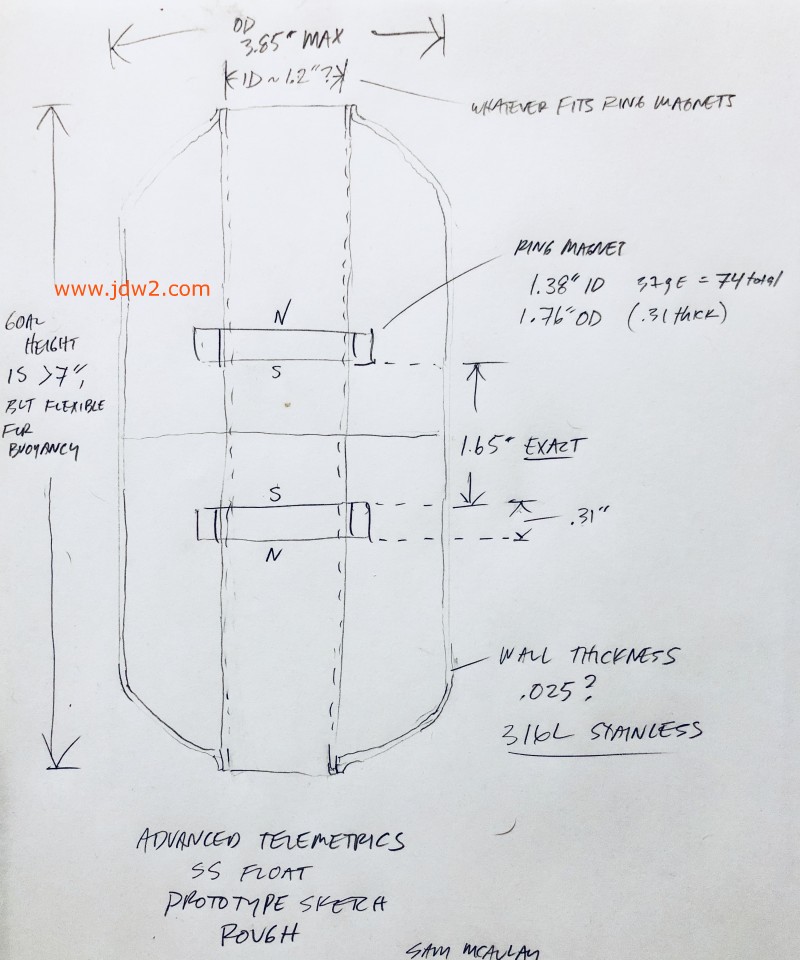 OD
3.85" MAX
ID ~ 1.2"?
WHATEVER FITS RING MAGNETS
RING MAGNET
1.38" ID 37g E = 74 total
1.76" OD (.31 thick)
www.jdw2.com
GOAL
HEIGHT
IS >7",
BUT FLEXIBLE
FOR
BUOYANCY
N
S
1.65" EXACT
S
N
.31"
WALL THICKNESS
.025?
316L STAINLESS
ADVANCED TELEMETRICS
SS FLOAT
PROTOTYPE SKETCH
ROUGH
SAM